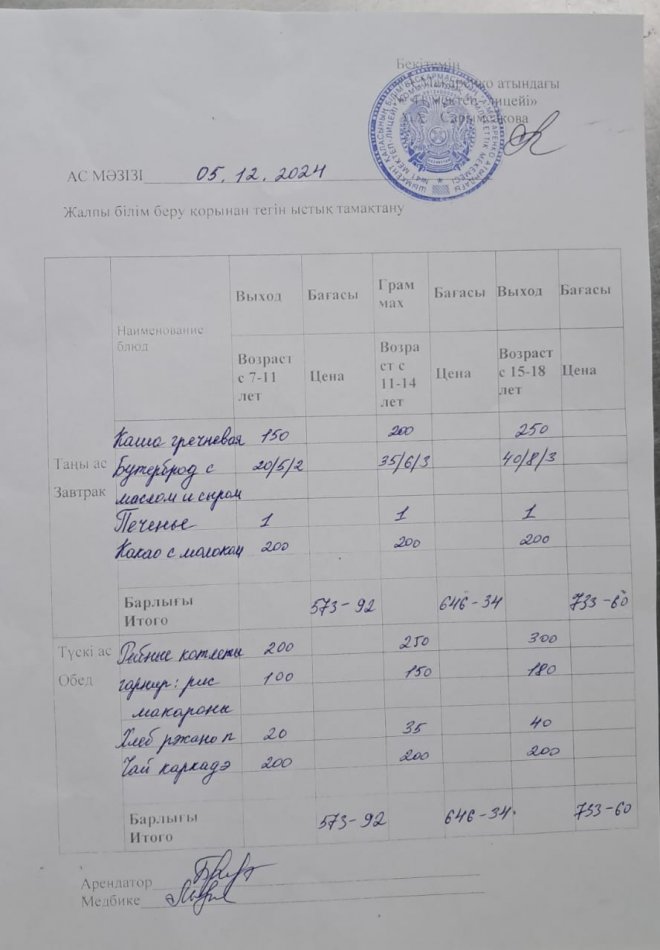 Бекітемін
атындағы
мектеп-лицейі»
АС МӘЗІЗІ 05.12.2024
Жалпы білім беру қорынан тегін ыстық тамақтану
Наименование блюд
Выход Бағасы Грам мах Бағасы Выход Бағасы
Возраст с 7-11 лет Цена Возра ст с 11-14 лет Цена Возраст с 15-18 лет Цена
Таңы ас
Завтрак
Каша гречневая 150 200 250
Бутерброд с 20/5/2 35/6/3 40/8/3
маслом и сыром
Печенье 1 1 1
Какао с молоком 200 200 200
Барлығы
Итого 573-92 646-34 733-60
Түскі ас
Обед
Рыбные котлеты 200 250 300
гарнир: рис 100 150 180
макароны
Хлеб ржано п 20 35 40
Чай каркадэ 200 200 200
Барлығы
Итого 573-92 646-34 733-60
Арендатор
Медбике